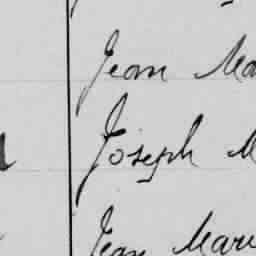 Jean Ma
Joseph M
Jean Mari